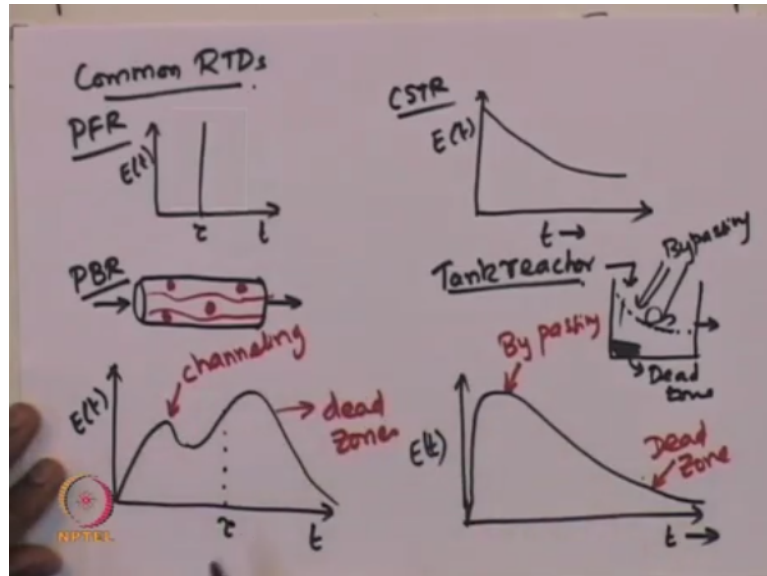 Common RTDs
PFR
E(t)
τ
t
CSTR
E(t)
t →
PBR
channeling
E(t)
dead
zones
τ
t
Tank reactor
Bypassing
Dead
zone
By passing
E(t)
Dead
zone
t →
NPTEL